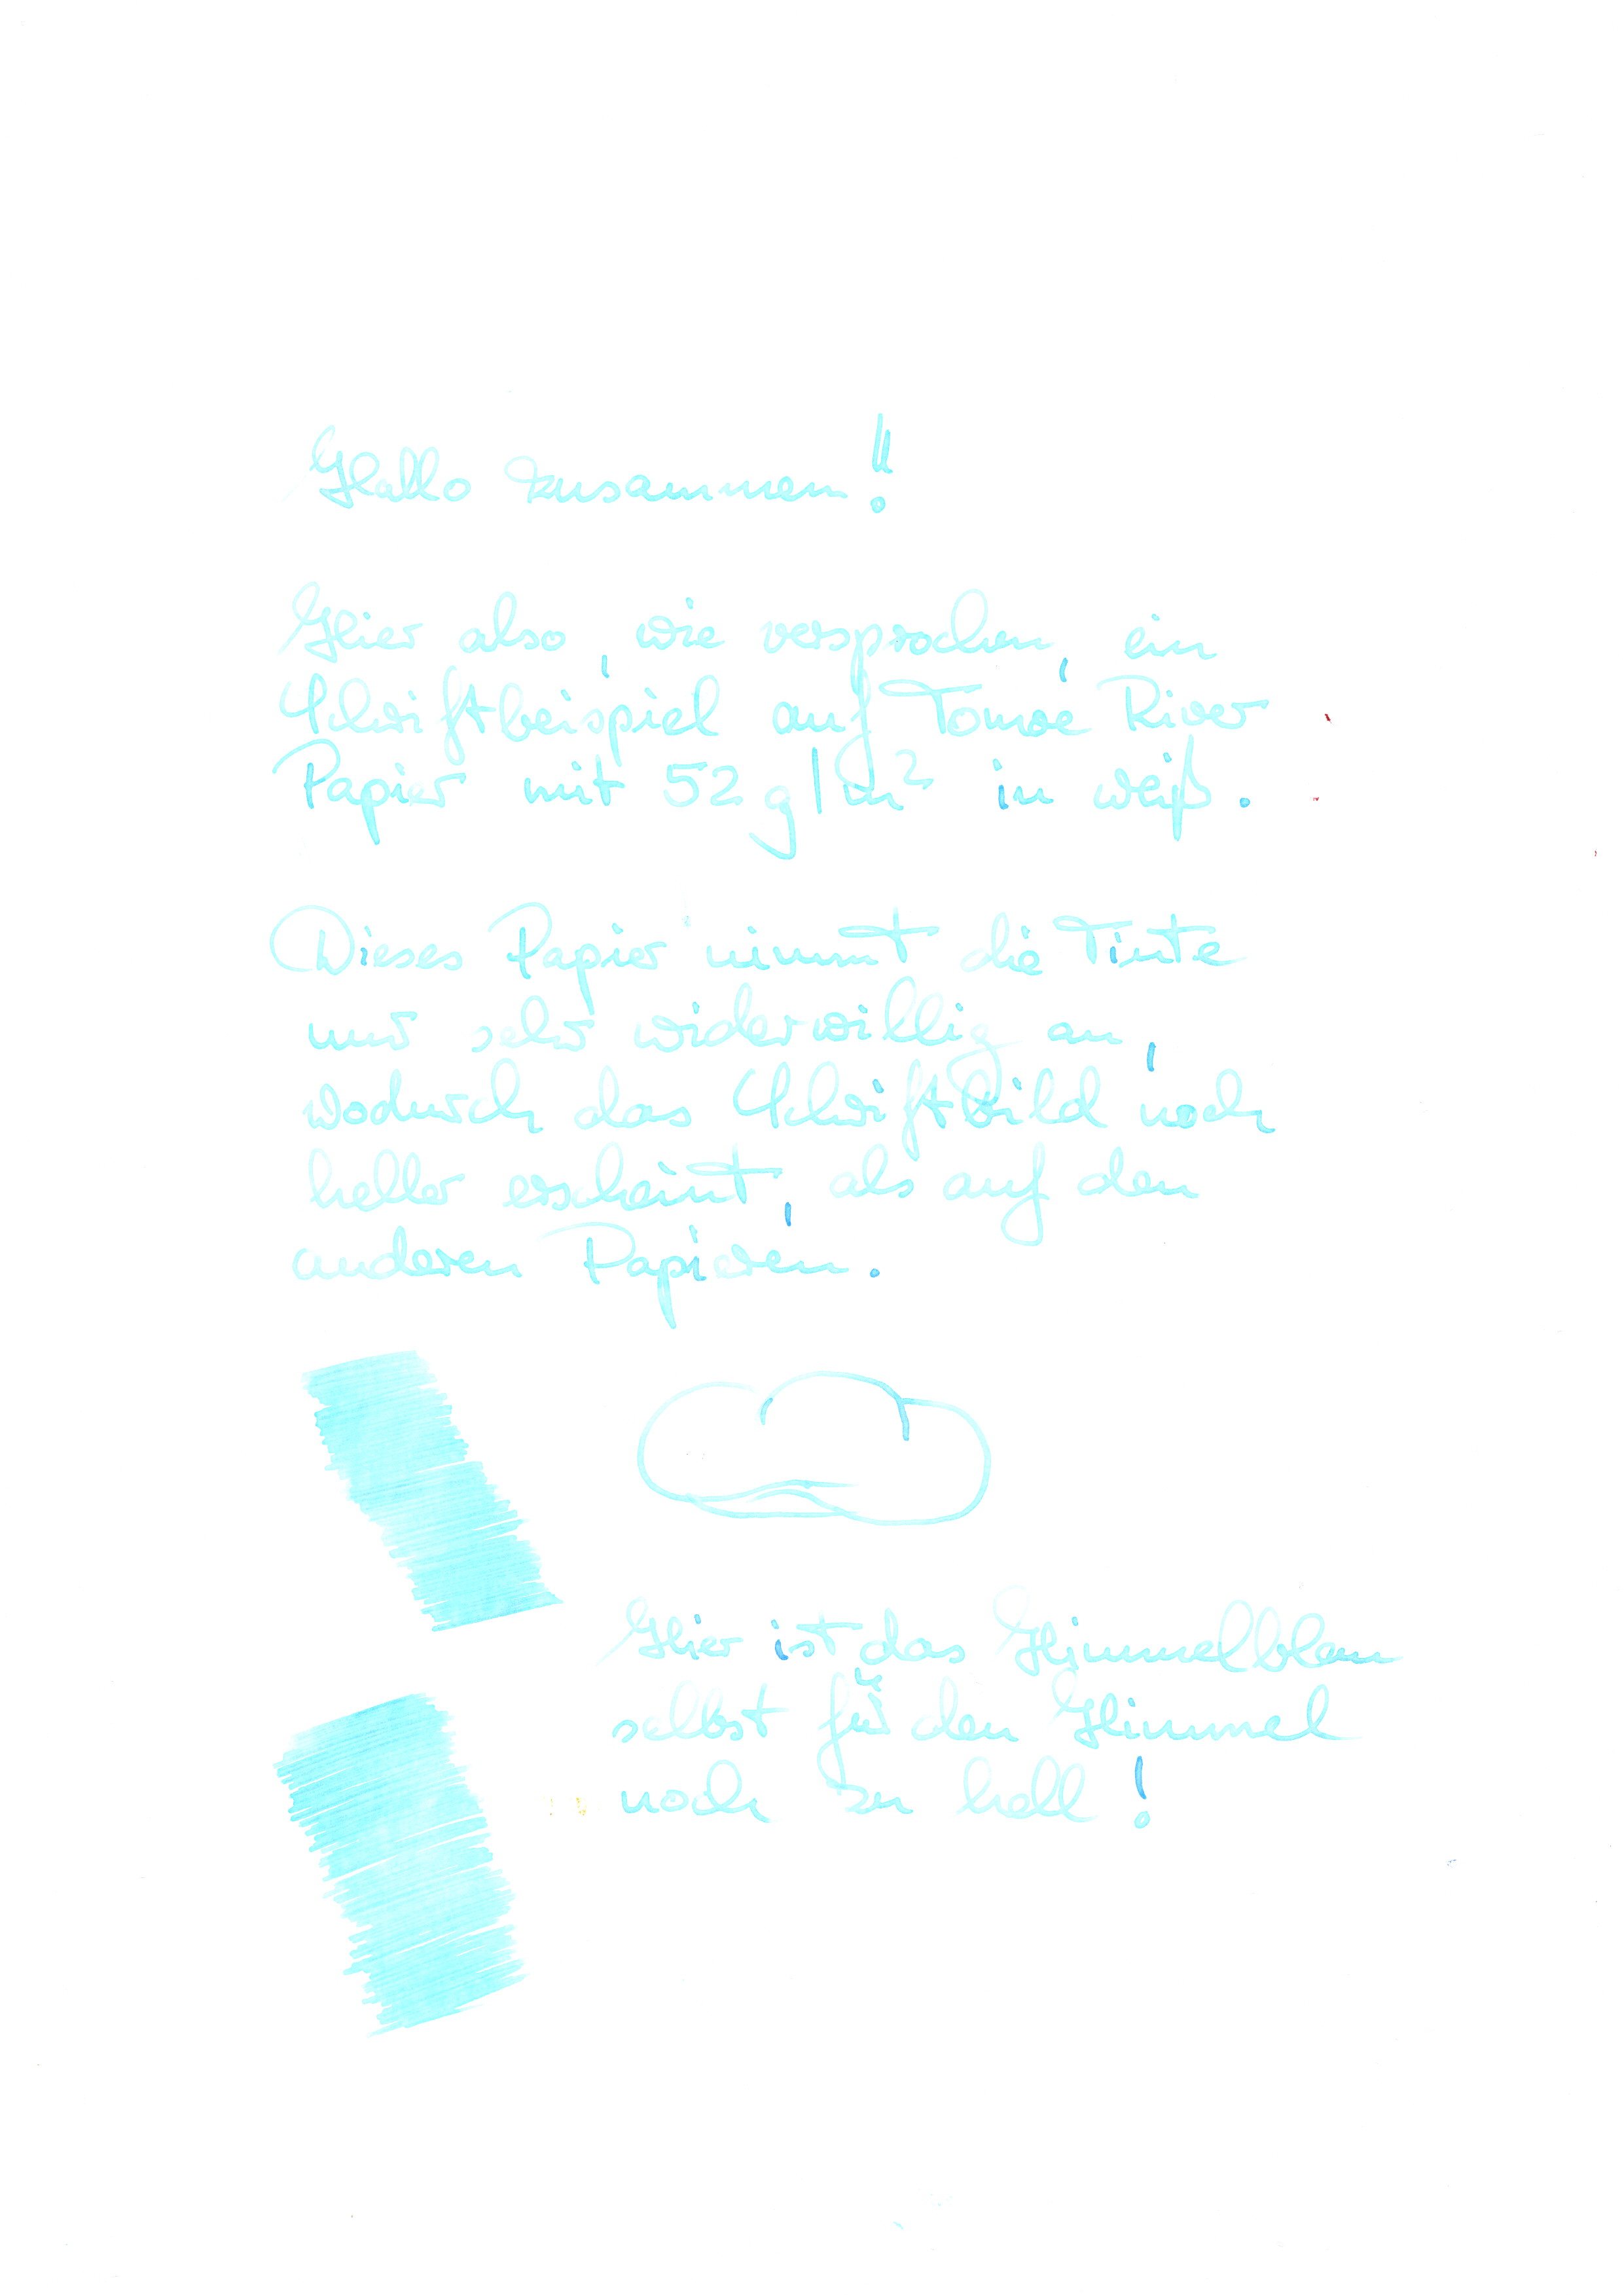 Hallo zusammen!
Hier also, wie versprochen, ein
Schriftbeispiel auf Tomoe River
Papier mit 52 g/m² in weiß.
Dieses Papier nimmt die Tinte
nur sehr widerwillig an,
wodurch das Schriftbild noch
heller erscheint, als auf den
anderen Papieren.
Hier ist das Himmelblau
selbst für den Himmel
noch zu hell!